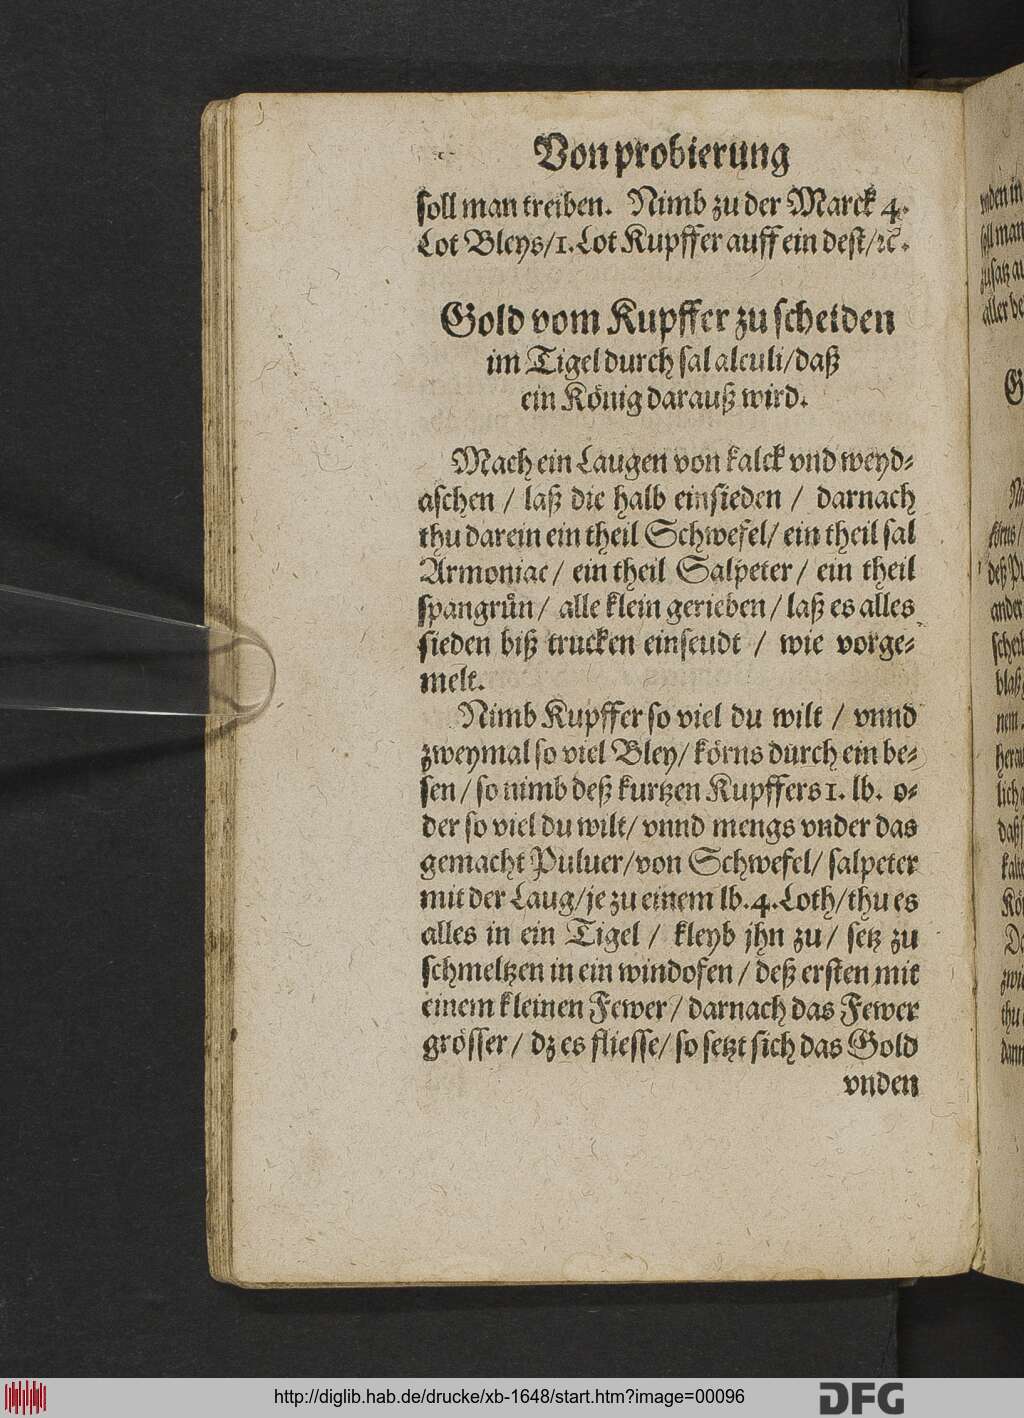 Von probierung
soll man treiben. Nimb zu der Marck 4.
Lot Bleys/1. Lot Kupffer auff ein dest/ꝛc.
Gold vom Kupffer zu scheiden
im Tigel durch sal alculi/daß
ein König darauß wird.
Mach ein Laugen von kalck vnd weyd-
aschen / laß die halb einsieden / darnach
thu darein ein theil Schwefel/ ein theil sal
Armoniac/ ein theil Salpeter/ ein theil
spangruͤn/ alle klein gerieben/ laß es alles
sieden biß trucken einseudt / wie vorge-
melt.
Nimb Kupffer so viel du wilt / vnnd
zweymal so viel Bley/ körns durch ein be-
sen/ so nimb deß kurtzen Kupffers 1. lb. o-
der so viel du wilt/ vnnd mengs vnder das
gemacht Puluer/von Schwefel/ salpeter
mit der Laug/je zu einem lb. 4. Loth/thu es
alles in ein Tigel / kleyb jhn zu/ setz zu
schmeltzen in ein windofen/ deß ersten mit
einem kleinen Fewer/ darnach das Fewer
grösser/ dz es fliesse/ so setzt sich das Gold
vnden
http://diglib.hab.de/drucke/xb-1648/start.htm?image=00096
DFG